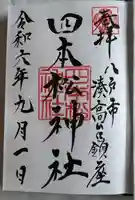 奉拝 八戸市
湊高台鎮座
四本松神社
令和六年九月一日